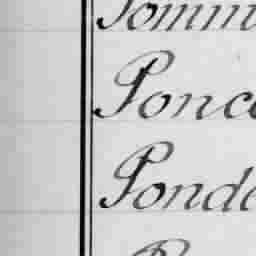 Pomm
Ponc
Pond